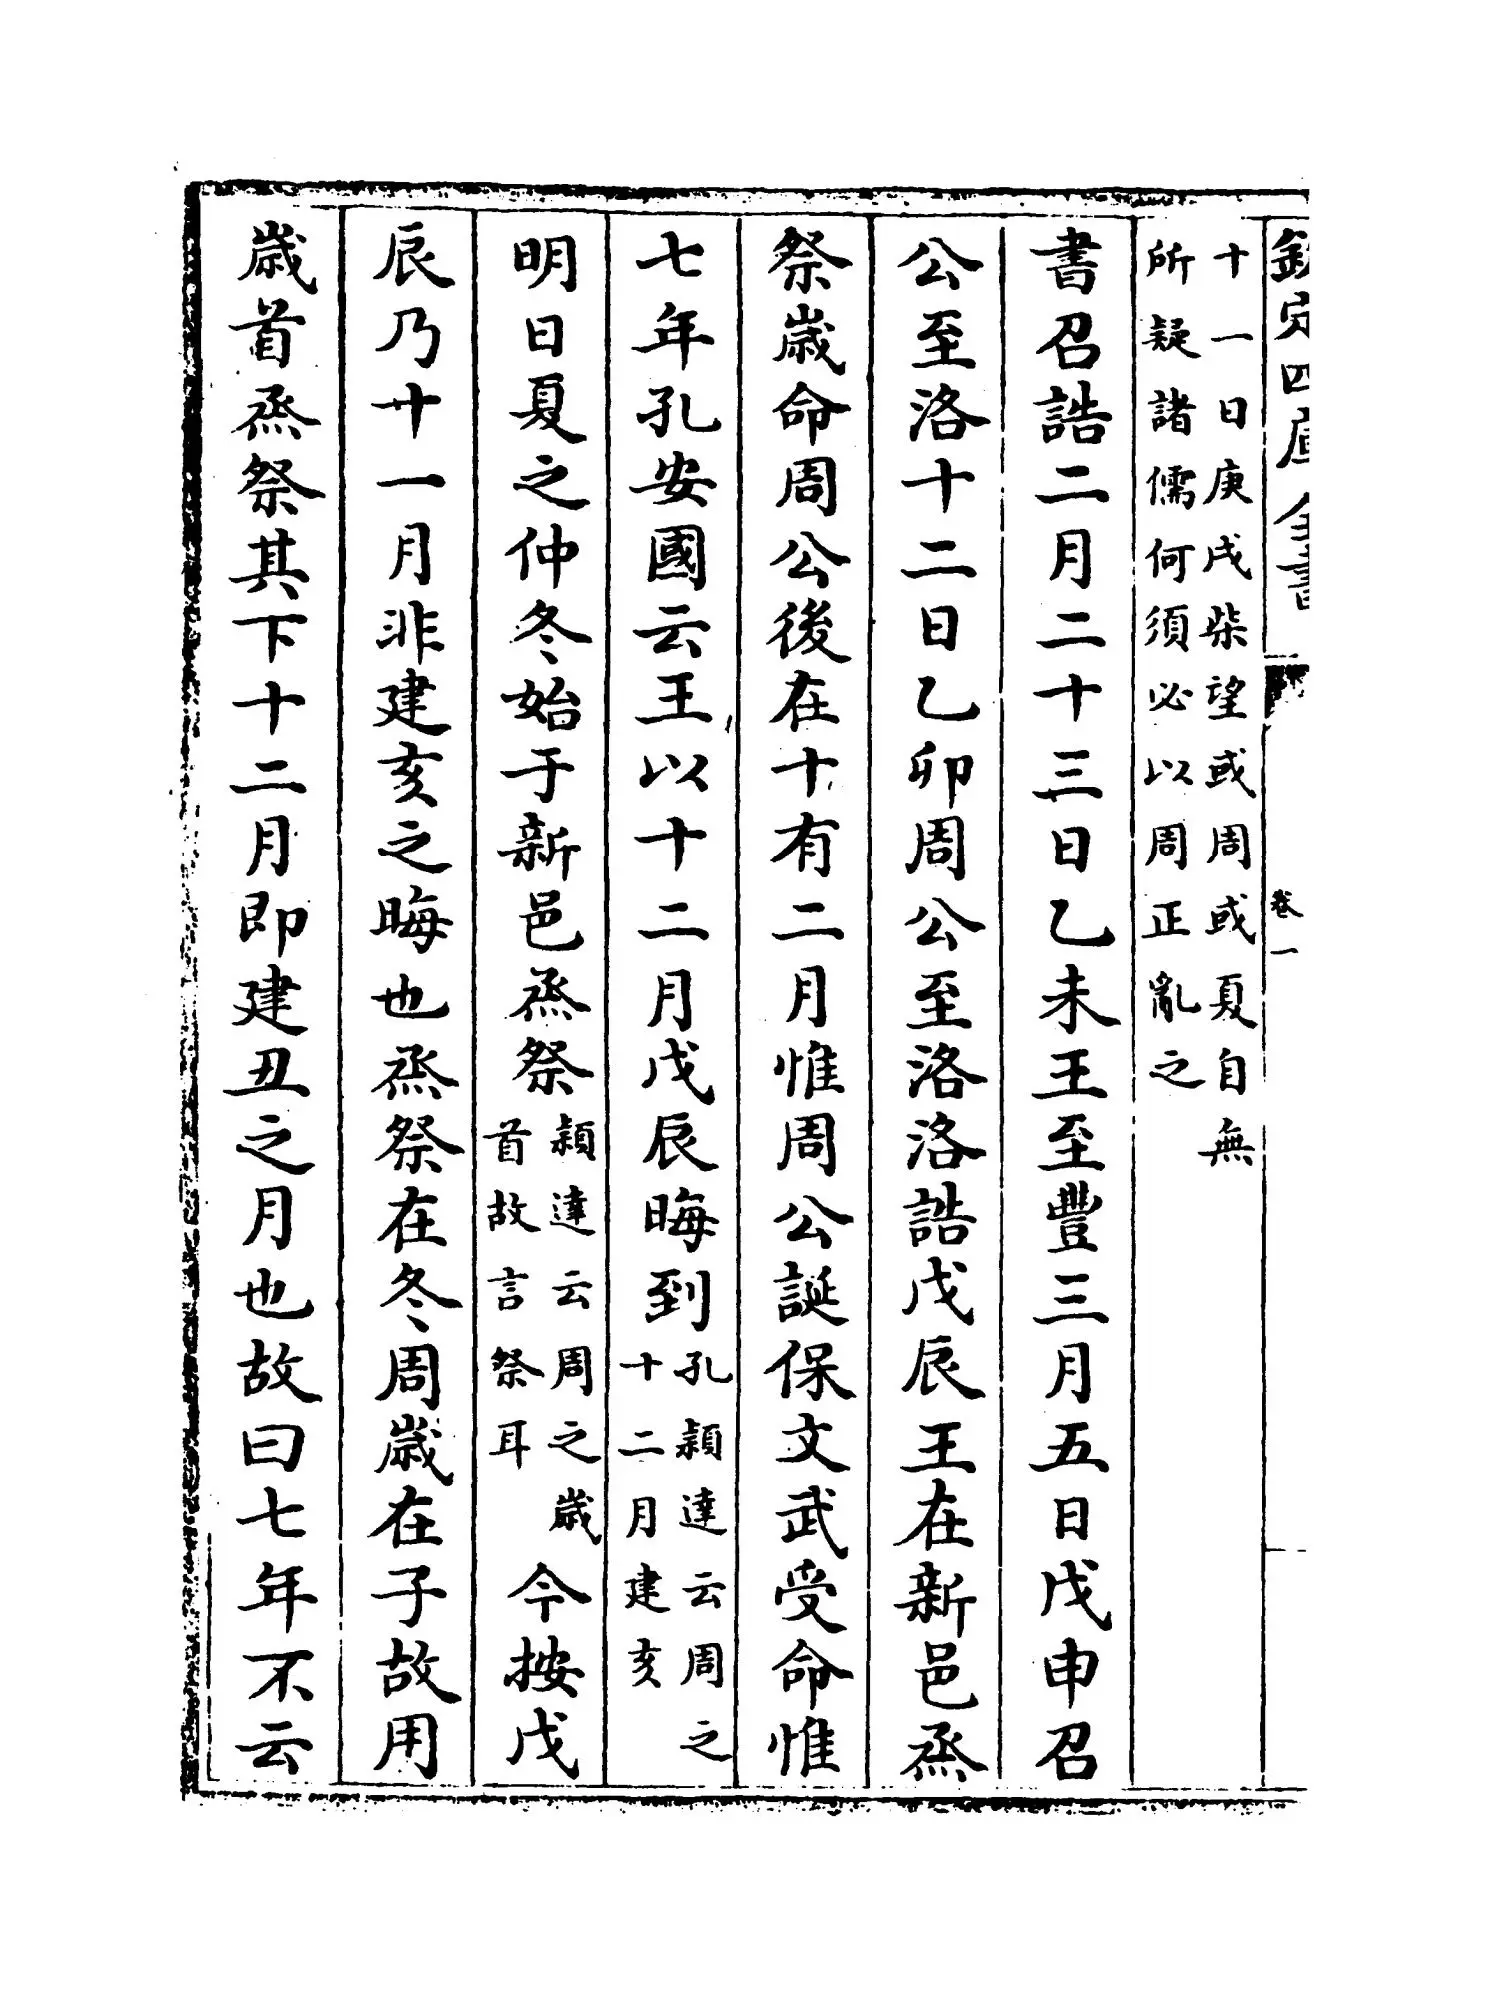 欽定四庫全書
卷一
十一日庚戌柴望或周或夏自無
所疑諸儒何須必以周正亂之
書召誥二月二十三日乙未王至豐三月五日戊申召
公至洛十二日乙卯周公至洛洛誥戊辰王在新邑烝
祭歲命周公後在十有二月惟周公誕保文武受命惟
七年孔安國云王以十二月戊辰晦到孔穎達云周之十二月建亥
明日夏之仲冬始于新邑烝祭穎達云周之歲首故言祭耳今按戊
辰乃十一月非建亥之晦也烝祭在冬周歲在子故用
歲首烝祭其下十二月即建丑之月也故曰七年不云